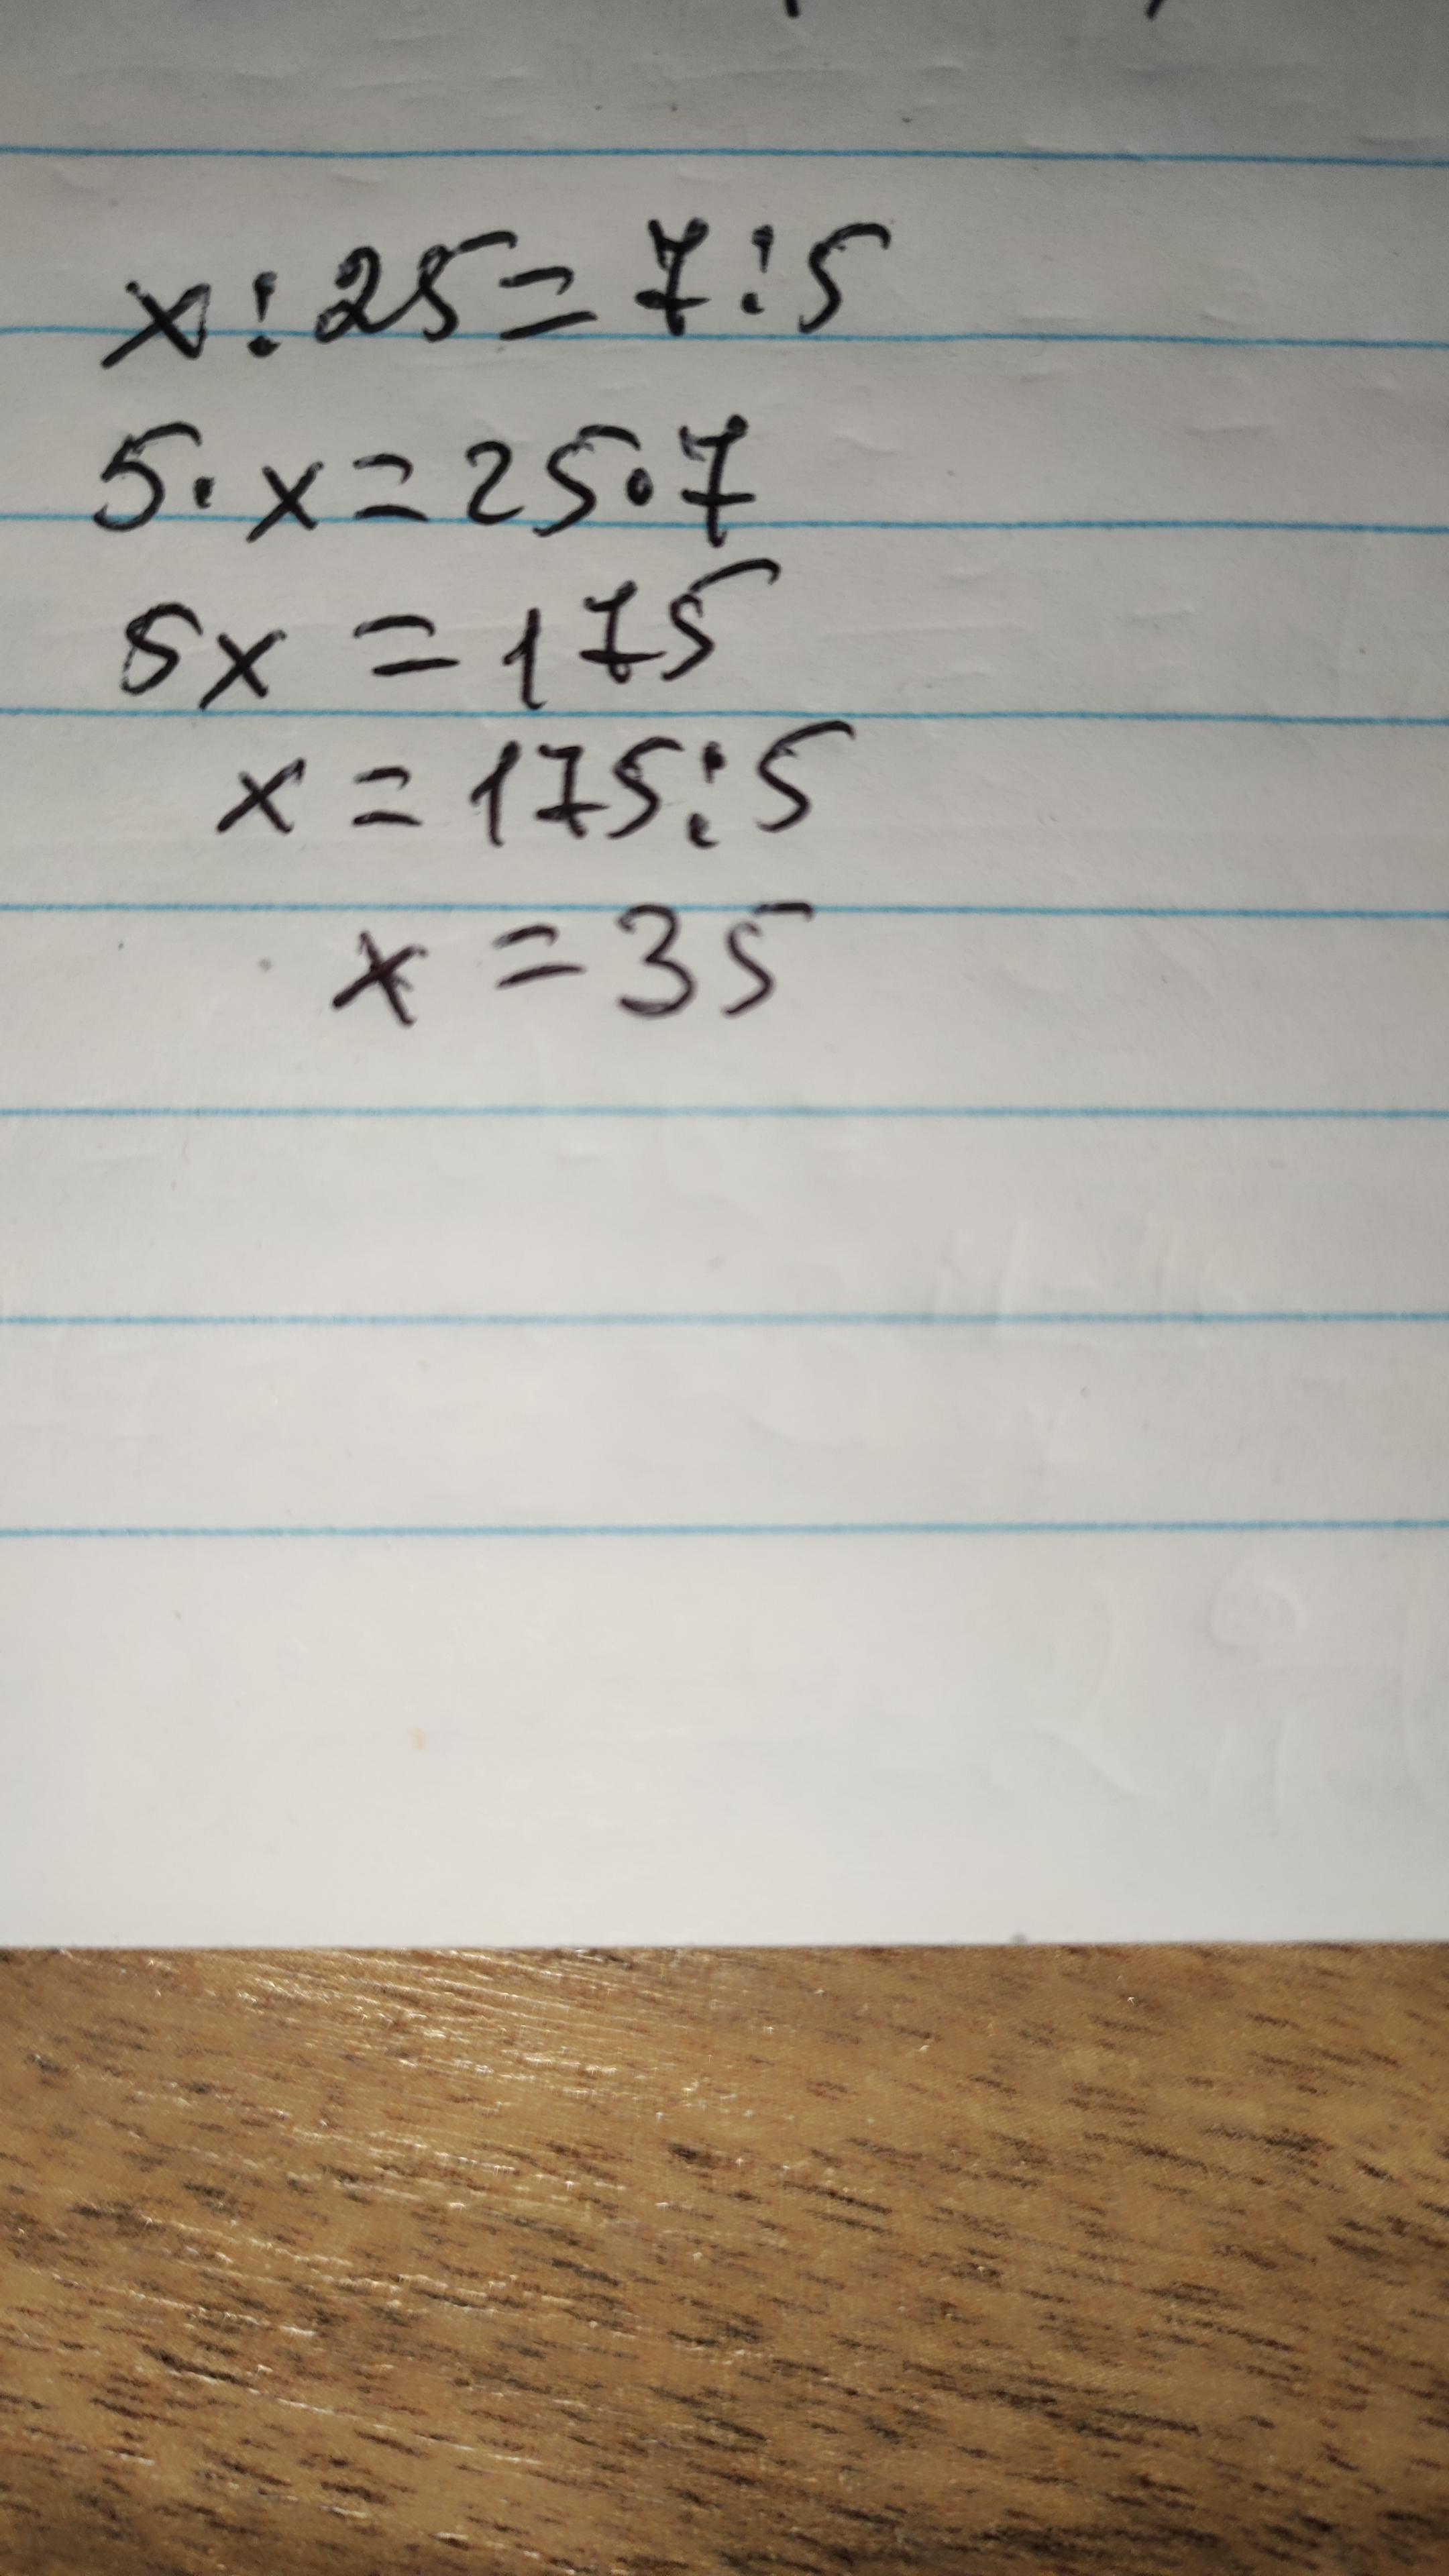 x : 25 = 7 : 5
5 · x = 25 · 7
5x = 175
x = 175 : 5
x = 35